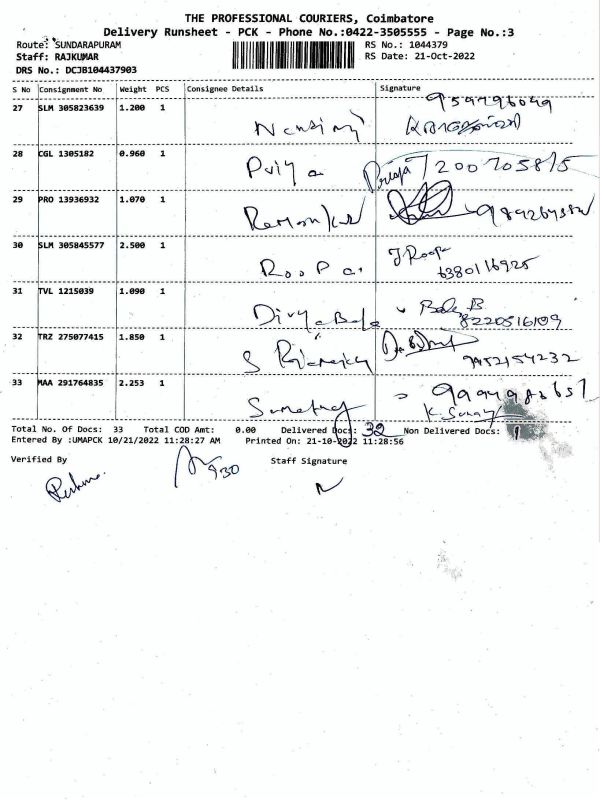 THE PROFESSIONAL COURIERS, Coimbatore
Delivery Runsheet - PCK - Phone No.:0422-3505555 - Page No.:3
Route: SUNDARAPURAM
RS No.: 1044379
Staff: RAJKUMAR
RS Date: 21-Oct-2022
DRS No.: DCJB104437903
S No Consignment No Weight PCS Consignee Details Signature
27 SLM 305823639 1.200 1
28 CGL 1305182 0.960 1 Priya Priya 7200705815
29 PRO 13936932 1.070 1
30 SLM 305845577 2.500 1 Roopa. J Roopa
6380116925
31 TVL 1215039 1.090 1 Divya Bala Bala B
8220516109
32 TRZ 275077415 1.850 1 S
9952154232
33 MAA 291764835 2.253 1
Total No. Of Docs: 33 Total COD Amt: 0.00 Delivered Docs: 32 Non Delivered Docs: 1
Entered By :UMAPCK 10/21/2022 11:28:27 AM Printed On: 21-10-2022 11:28:56
Verified By Staff Signature